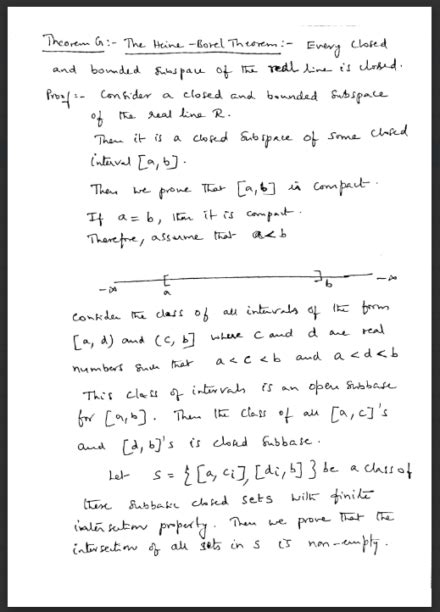 Theorem G:- The Heine-Borel Theorem:- Every closed
and bounded subspace of the real line is closed.
Proof:- Consider a closed and bounded subspace
of the real line R.
Then it is a closed subspace of some closed
interval [a, b].
Then we prove that [a, b] is compact.
If a = b, then it is compact.
Therefore, assume that a < b
-∞ a b -∞
Consider the class of all intervals of the form
[a, d) and (c, b] where c and d are real
numbers such that a < c < b and a < d < b
This class of intervals is an open subbase
for [a, b]. Then the class of all [a, c]'s
and [d, b]'s is closed subbase.
Let S = { [a, ci], [di, b] } be a class of
these subbasic closed sets with finite
intersection property. Then we prove that the
intersection of all sets in S is non-empty.